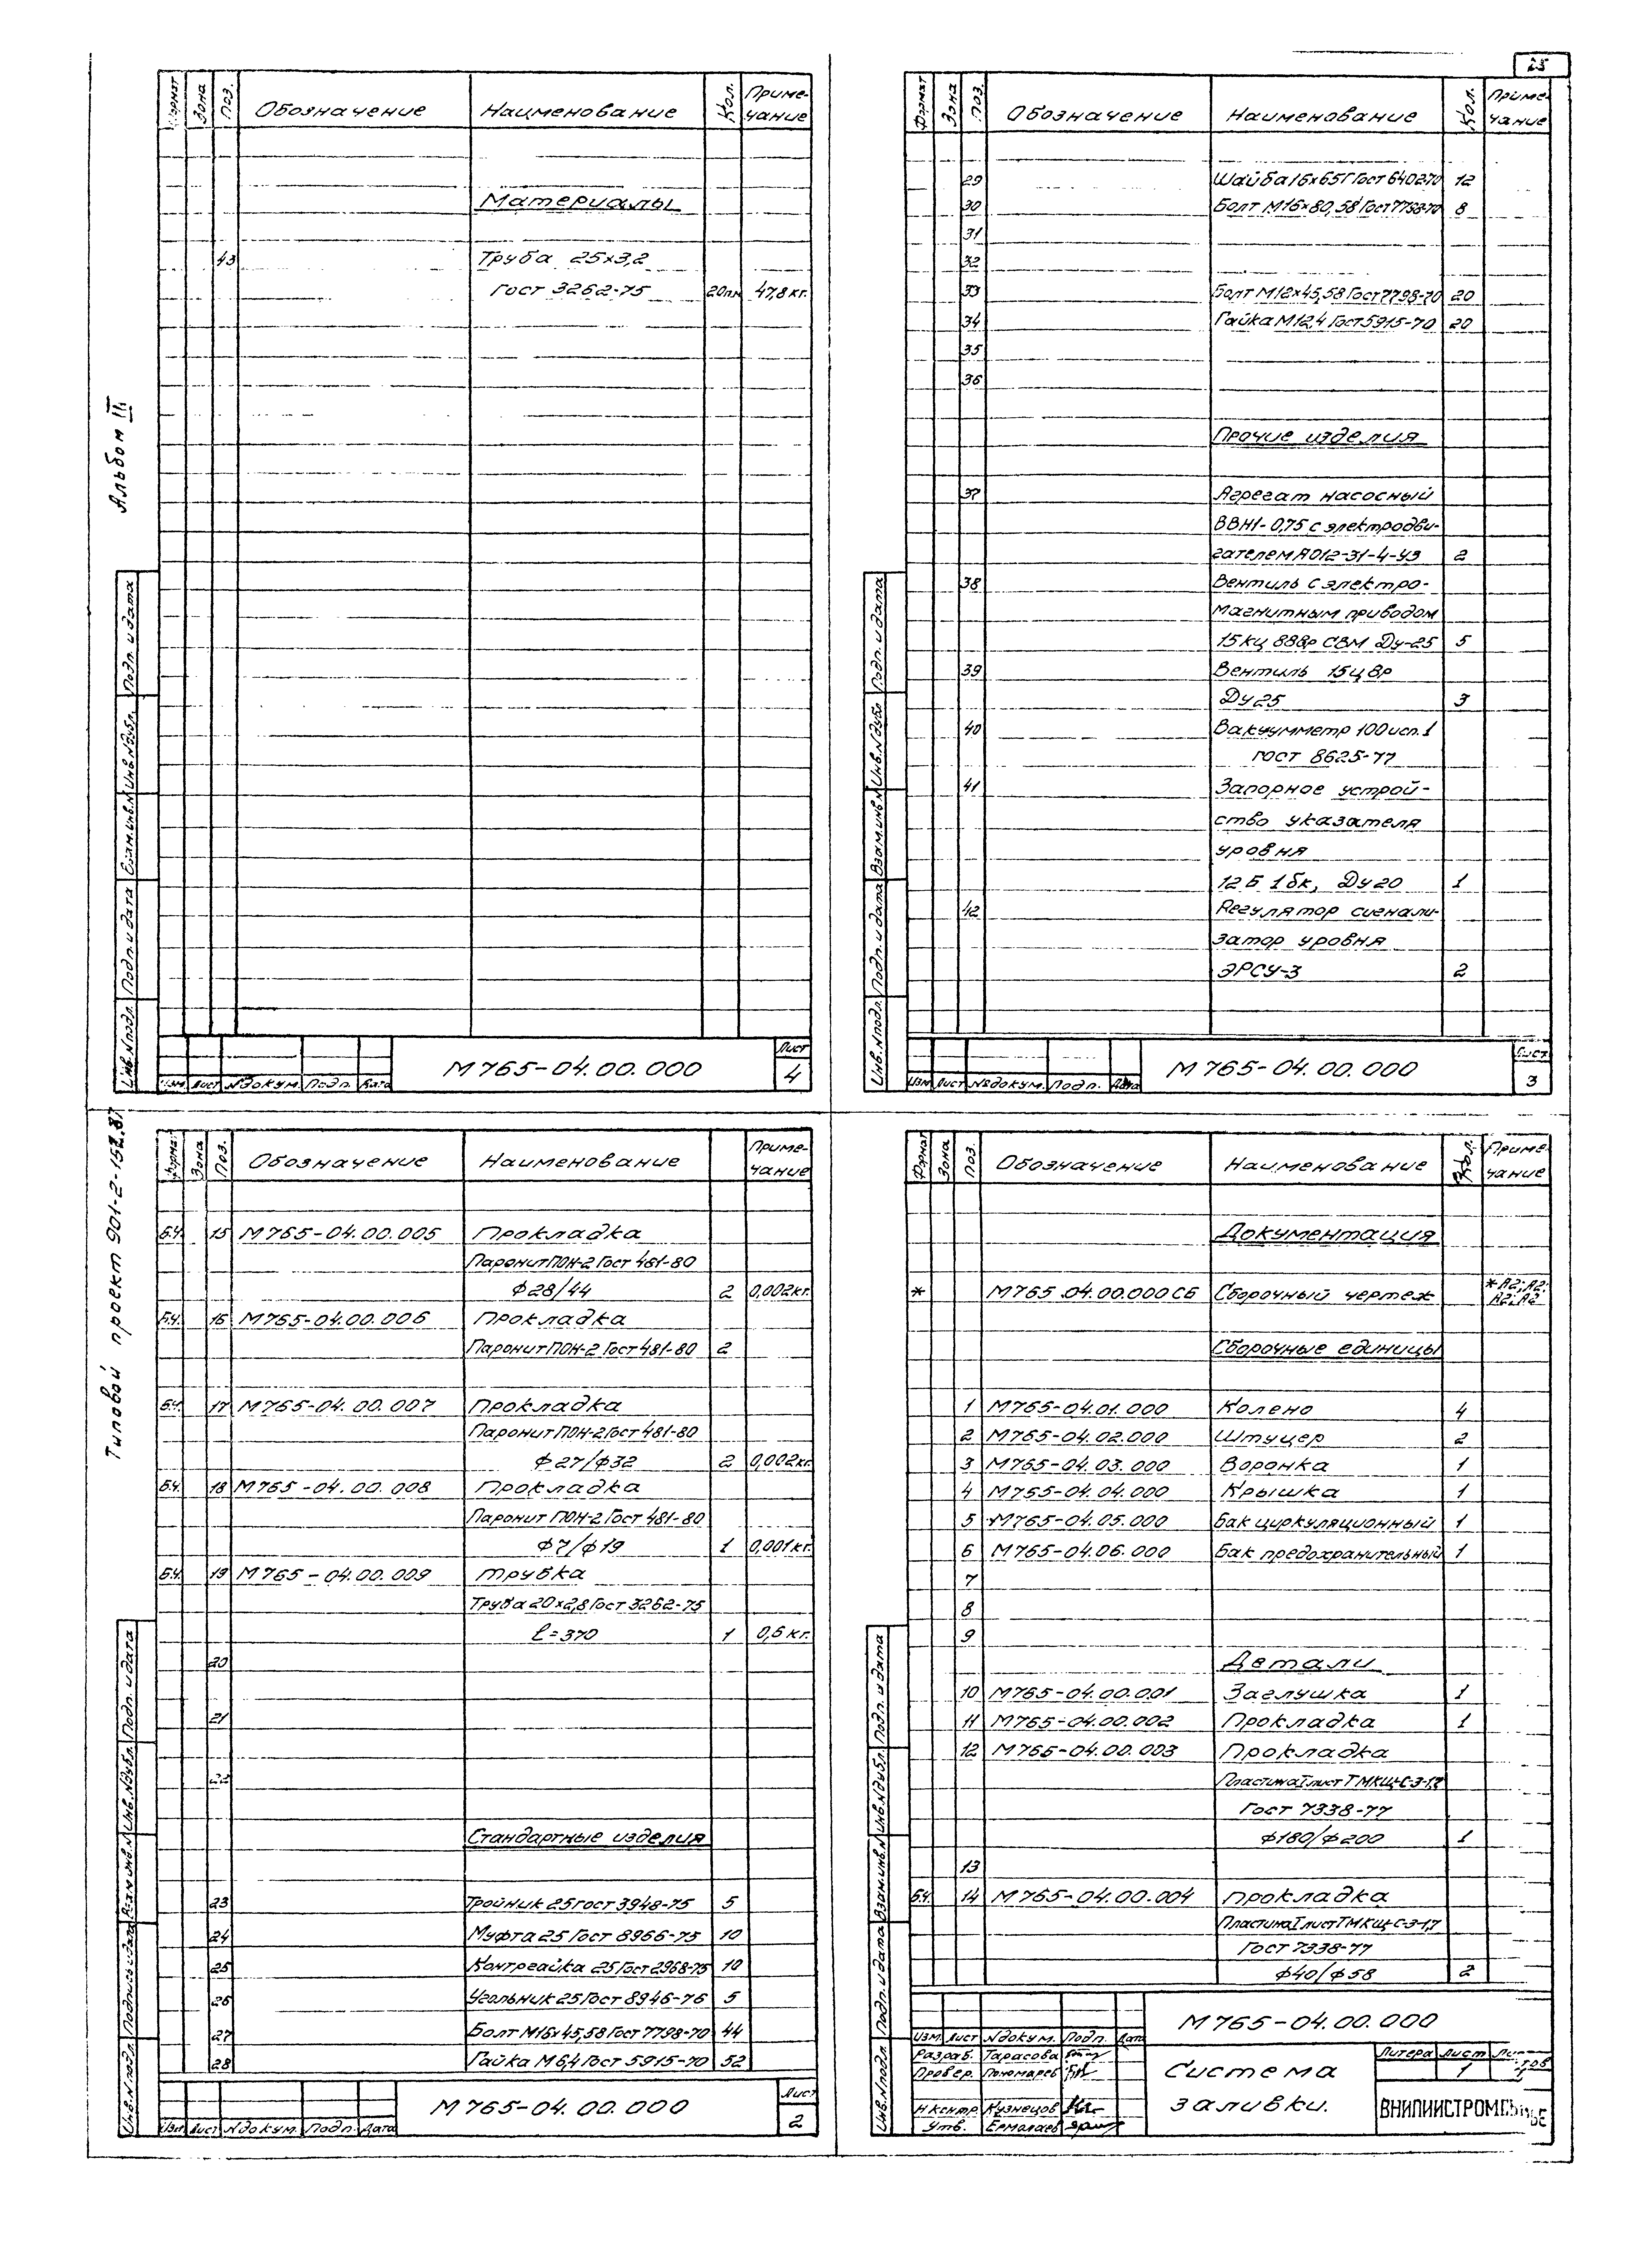 25
Альбом III
Типовой проект 901-2-152.87
Формат Зона Поз. Обозначение Наименование Кол. Приме-
чание
Материалы
43 Труба 25х3,2
Гост 3262-75 20п.м 47,8 кг.
Инв.№подл. Подп. и дата Взам.инв.№ Инв.№дубл. Подп. и дата
Изм. Лист №докум. Подп. Дата
М765-04.00.000
Лист
4
Формат Зона Поз. Обозначение Наименование Кол. Приме-
чание
29 Шайба 16х65Г Гост 6402-70 12
30 Болт М16х80,58 Гост 7798-70 8
31
32
33 Болт М12х45,58 Гост 7798-70 20
34 Гайка М12,4 Гост 5915-70 20
35
36
Прочие изделия
37 Агрегат насосный
ВВН1-0,75 с электродви-
гателем АО12-31-4-У3 2
38 Вентиль с электро-
магнитным приводом
15кц 888р СВМ Ду-25 5
39 Вентиль 15ц8р
Ду 25 3
40 Вакуумметр 100 исп.1
ГОСТ 8625-77
41 Запорное устрой-
ство указателя
уровня
12 Б 1бк, Ду 20 1
42 Регулятор сигнали-
затор уровня
ЭРСУ-3 2
Инв.№подл. Подп. и дата Взам.инв.№ Инв.№дубл Подп. и дата
Изм Лист №докум. Подп. Дата
М765-04.00.000
Лист
3
Формат Зона Поз. Обозначение Наименование Приме-
чание
Б.Ч. 15 М765-04.00.005 Прокладка
Паронит ПОН-2 Гост 481-80
ф28/44 2 0,002кг.
Б.Ч. 16 М765-04.00.006 Прокладка
Паронит ПОН-2 Гост 481-80 2
Б.Ч. 17 М765-04.00.007 Прокладка
Паронит ПОН-2 Гост 481-80
ф27/ф32 2 0,002кг.
Б.Ч. 18 М765-04.00.008 Прокладка
Паронит ПОН-2 Гост 481-80
ф7/ф19 1 0,001кг.
Б.Ч. 19 М765-04.00.009 Трубка
Труба 20х2,8 Гост 3262-75
ℓ=370 1 0,6 кг.
20
21
22
Стандартные изделия
23 Тройник 25 Гост 3948-75 5
24 Муфта 25 Гост 8966-75 10
25 Контргайка 25 Гост 2968-75 10
26 Угольник 25 Гост 8946-76 5
27 Болт М16х45,58 Гост 7798-70 44
28 Гайка М6,4 Гост 5915-70 52
Инв.№подл. Подпись и дата Взам инв.№ Инв.№дубл. Подп. и дата
Изм Лист №докум. Подп. Дата
М765-04.00.000
Лист
2
Формат Зона Поз. Обозначение Наименование Кол. Приме-
чание
Документация
* М765.04.00.000СБ Сборочный чертеж *А2; А2;
А2; А2
Сборочные единицы
1 М765-04.01.000 Колено 4
2 М765-04.02.000 Штуцер 2
3 М765-04.03.000 Воронка 1
4 М765-04.04.000 Крышка 1
5 М765-04.05.000 Бак циркуляционный 1
6 М765-04.06.000 Бак предохранительный 1
7
8
9
Детали
10 М765-04.00.001 Заглушка 1
11 М765-04.00.002 Прокладка 1
12 М765-04.00.003 Прокладка
Пластина I лист ТМКЩ-С-3-1,7
Гост 7338-77
ф180/ф200 1
13
Б.Ч. 14 М765-04.00.004 Прокладка
Пластина I лист ТМКЩ-С-3-1,7
Гост 7338-77
ф40/ф58 2
Инв.№подл Подп. и дата Взам.инв.№ Инв.№дубл. Подп. и дата
Изм. Лист №докум. Подп. Дата
Разраб. Тарасова
Провер. Пономарев
Н.контр. Кузнецов
Утв. Ермолаев
М765-04.00.000
Система
заливки.
Литера Лист
1
ВНИПИИСТРОМСЫРЬЕ